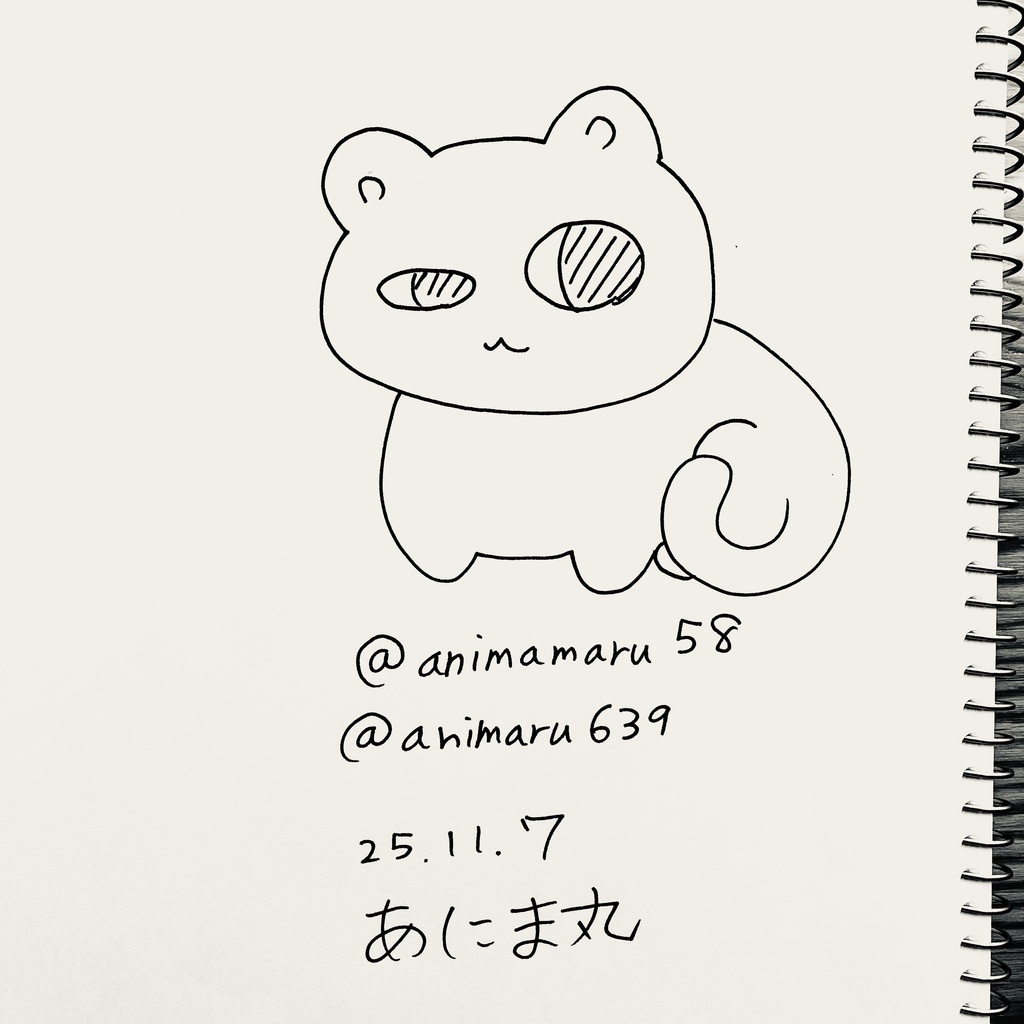 @animamaru58
@animaru639
25.11.7
あにま丸